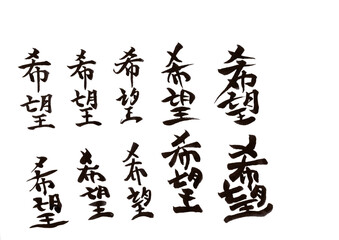 希望
希望
希望
希望
希望
希望
希望
希望
希望
希望